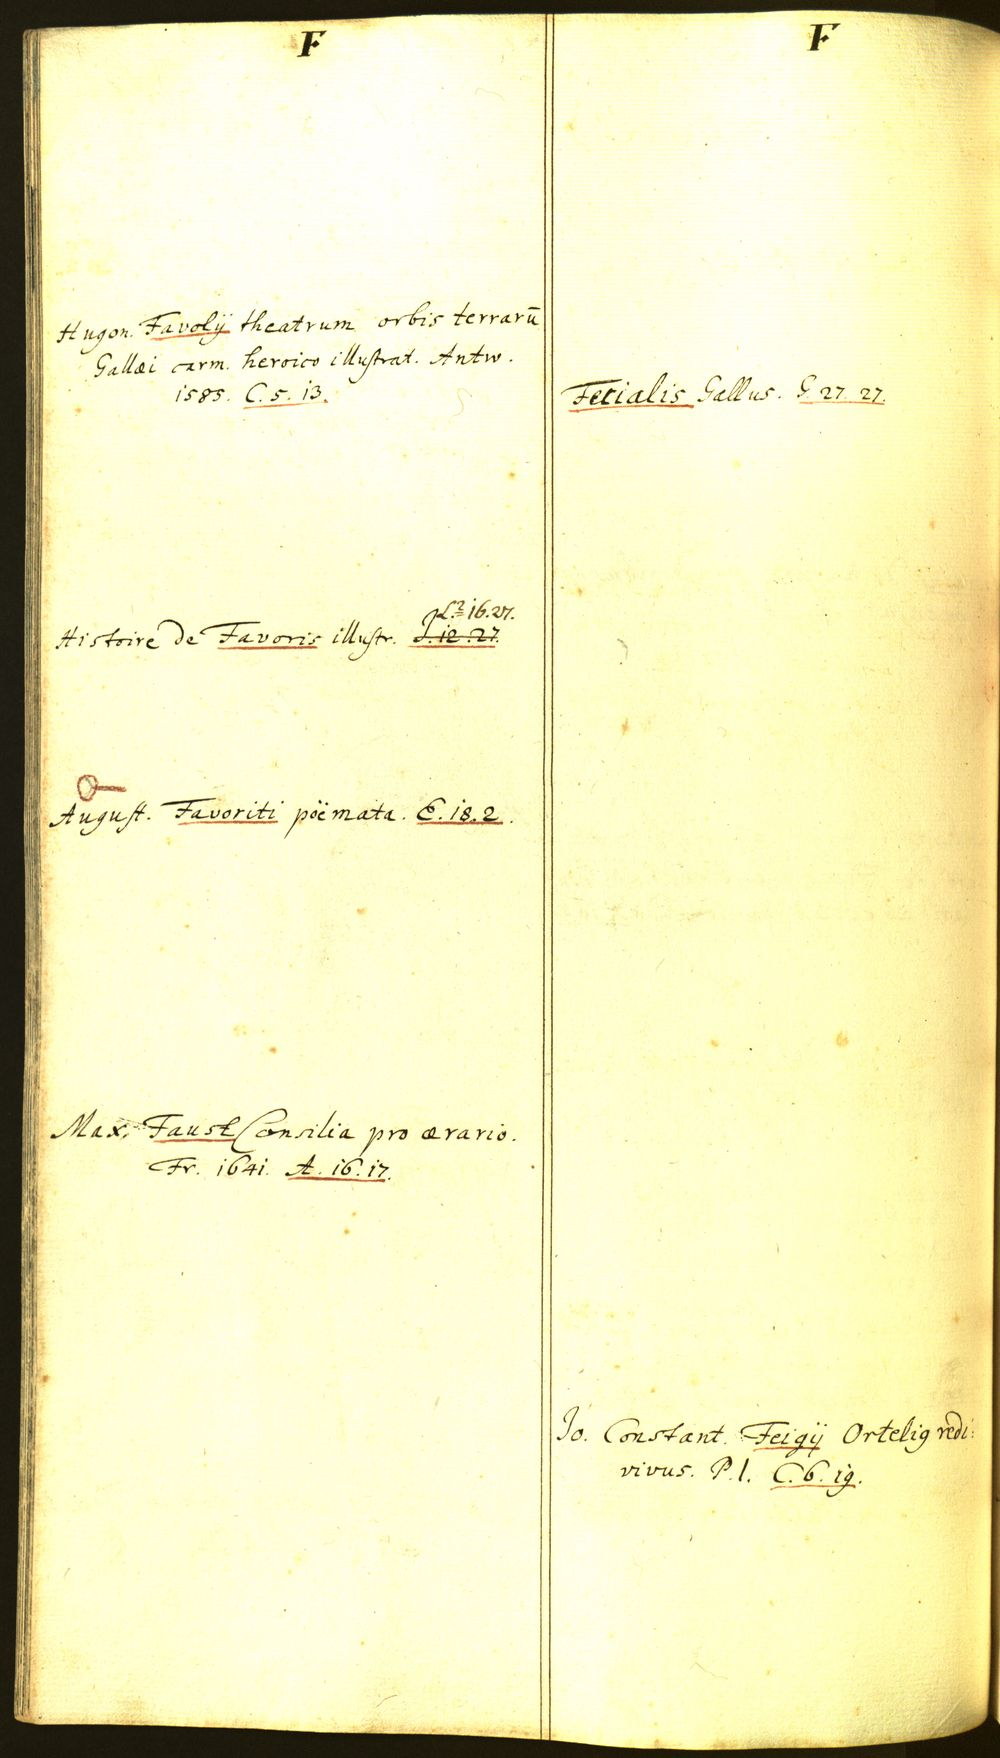 F
Hugon. Favolÿ theatrum orbis terrarū
Gallæi carm. heroico illustrat. Antw.
1585. C. 5. 13.
16.27.
Histoire de Favoris illustr. 12.27.
August. Favoriti poëmata. E. 18. 2.
Max. Faust Consilia pro ærario.
Fr. 1641. A. 16. 17.
F
Fecialis Gallus. G. 27. 27.
Jo. Constant. Feigÿ Ortelig redi:
vivus. P. I. C. 6. 19.